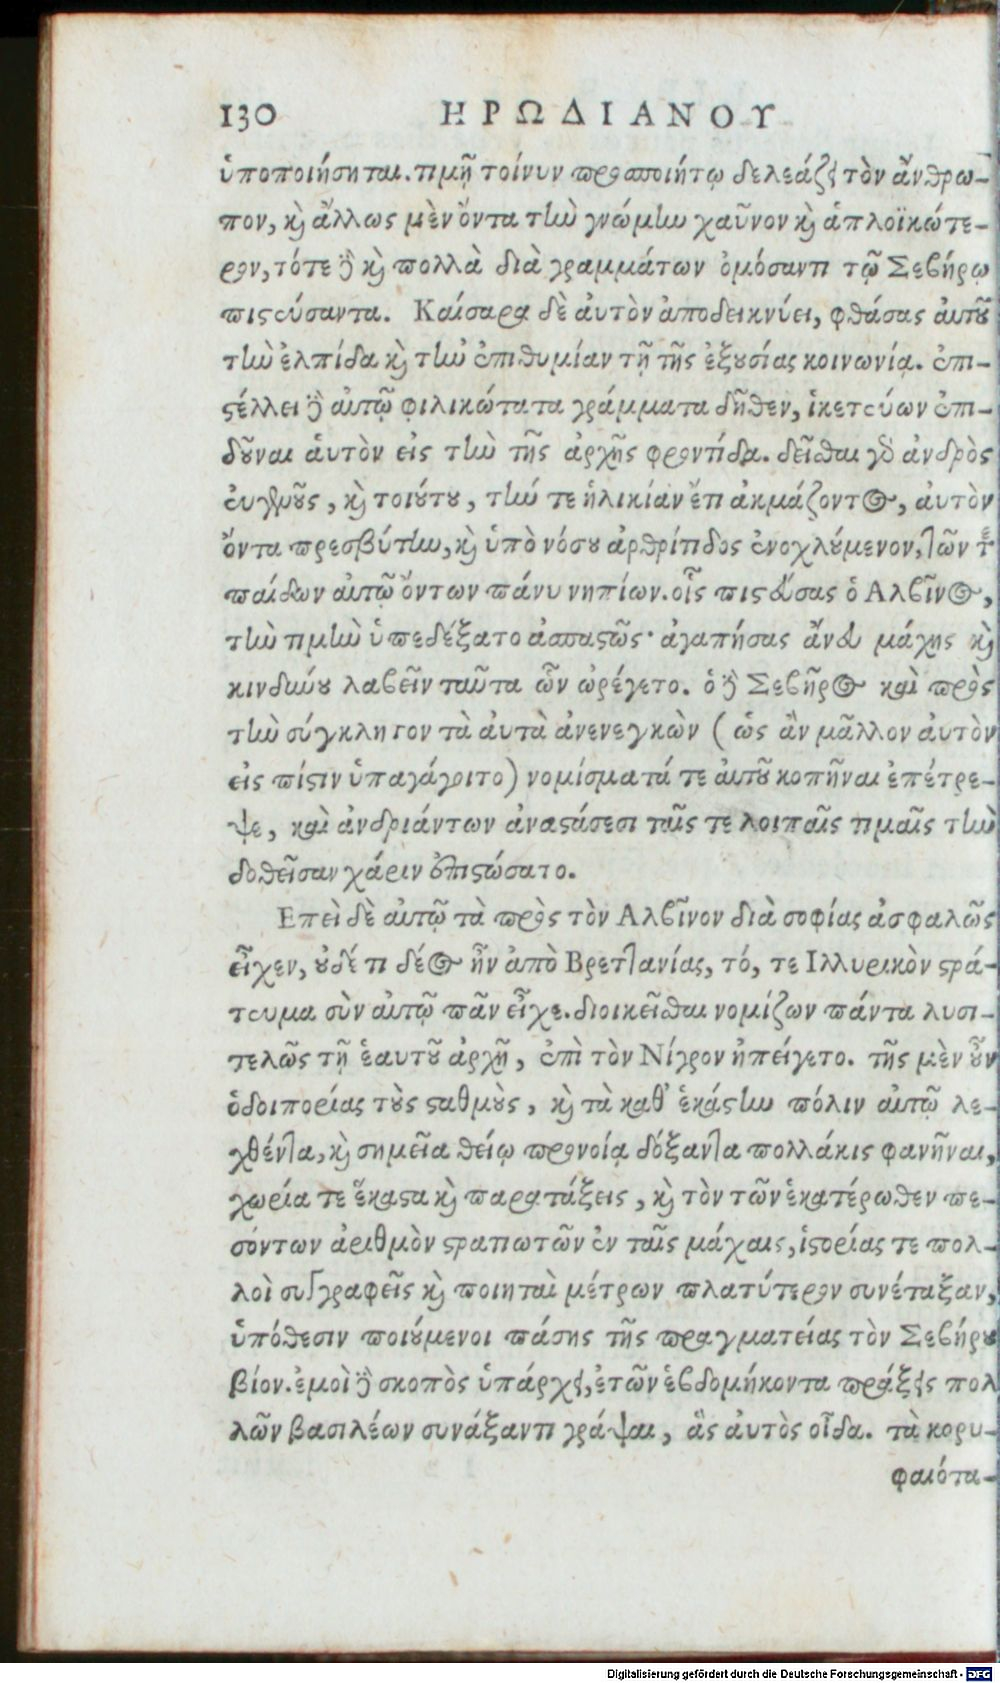 130 ΗΡΩΔΙΑΝΟΥ
ὑποποιήσηται. τιμῇ τοίνυν προσποιήτῳ δελεάζει τὸν ἄνθρω-
πον, καὶ ἄλλως μὲν ὄντα τὴν γνώμην χαῦνον καὶ ἁπλοϊκώτε-
ρον, τότε δὲ καὶ πολλὰ διὰ γραμμάτων ὀμόσαντι τῷ Σεβήρῳ
πιστεύσαντα. Καίσαρα δὲ αὐτὸν ἀποδεικνύει, φθάσας αὐτοῦ
τὴν ἐλπίδα καὶ τὴν ἐπιθυμίαν τῇ τῆς ἐξουσίας κοινωνίᾳ. ἐπι-
στέλλει δὲ αὐτῷ φιλικώτατα γράμματα δῆθεν, ἱκετεύων ἐπι-
δοῦναι ἑαυτὸν εἰς τὴν τῆς ἀρχῆς φροντίδα. δεῖσθαι γὰρ ἀνδρὸς
εὐγενοῦς, καὶ τοιούτου, τήν τε ἡλικίαν ἔτι ἀκμάζοντος, αὐτὸν
ὄντα πρεσβύτην, καὶ ὑπὸ νόσου ἀρθρίτιδος ἐνοχλούμενον, τῶν τε
παίδων αὐτῷ ὄντων πάνυ νηπίων. οἷς πιστεύσας ὁ Αλβῖνος,
τὴν τιμὴν ὑπεδέξατο ἀσπαστῶς· ἀγαπήσας ἄνευ μάχης καὶ
κινδύνου λαβεῖν ταῦτα ὧν ὠρέγετο. ὁ δὲ Σεβῆρος καὶ πρὸς
τὴν σύγκλητον τὰ αὐτὰ ἀνενεγκὼν (ὡς ἂν μᾶλλον αὐτὸν
εἰς πίστιν ὑπαγάγοιτο) νομίσματά τε αὐτοῦ κοπῆναι ἐπέτρε-
ψε, καὶ ἀνδριάντων ἀναστάσεσι ταῖς τε λοιπαῖς τιμαῖς τὴν
δοθεῖσαν χάριν ἐπιστώσατο.
Επεὶ δὲ αὐτῷ τὰ πρὸς τὸν Αλβῖνον διὰ σοφίας ἀσφαλῶς
εἶχεν, οὐδέ τι δέος ἦν ἀπὸ Βρεττανίας, τό, τε Ιλλυρικὸν στρά-
τευμα σὺν αὐτῷ πᾶν εἶχε. διοικεῖσθαι νομίζων πάντα λυσι-
τελῶς τῇ ἑαυτοῦ ἀρχῇ, ἐπὶ τὸν Νίγρον ἠπείγετο. τῆς μὲν οὖν
ὁδοιπορίας τοὺς σταθμοὺς, καὶ τὰ καθ' ἑκάστην πόλιν αὐτῷ λε-
χθέντα, καὶ σημεῖα θείῳ προνοίᾳ δόξαντα πολλάκις φανῆναι,
χωρία τε ἕκαστα καὶ παρατάξεις, καὶ τὸν τῶν ἑκατέρωθεν πε-
σόντων ἀριθμὸν στρατιωτῶν ἐν ταῖς μάχαις, ἱστορίας τε πολ-
λοὶ συγγραφεῖς καὶ ποιηταὶ μέτρων πλατύτερον συνέταξαν,
ὑπόθεσιν ποιούμενοι πάσης τῆς πραγματείας τὸν Σεβήρου
βίον. ἐμοὶ δὲ σκοπὸς ὑπάρχει, ἐτῶν ἑβδομήκοντα πράξεις πολ
λῶν βασιλέων συνάξαντι γράψαι, ἃς αὐτὸς οἶδα. τὰ κορυ-
φαιότα-
Digitalisierung gefördert durch die Deutsche Forschungsgemeinschaft - DFG